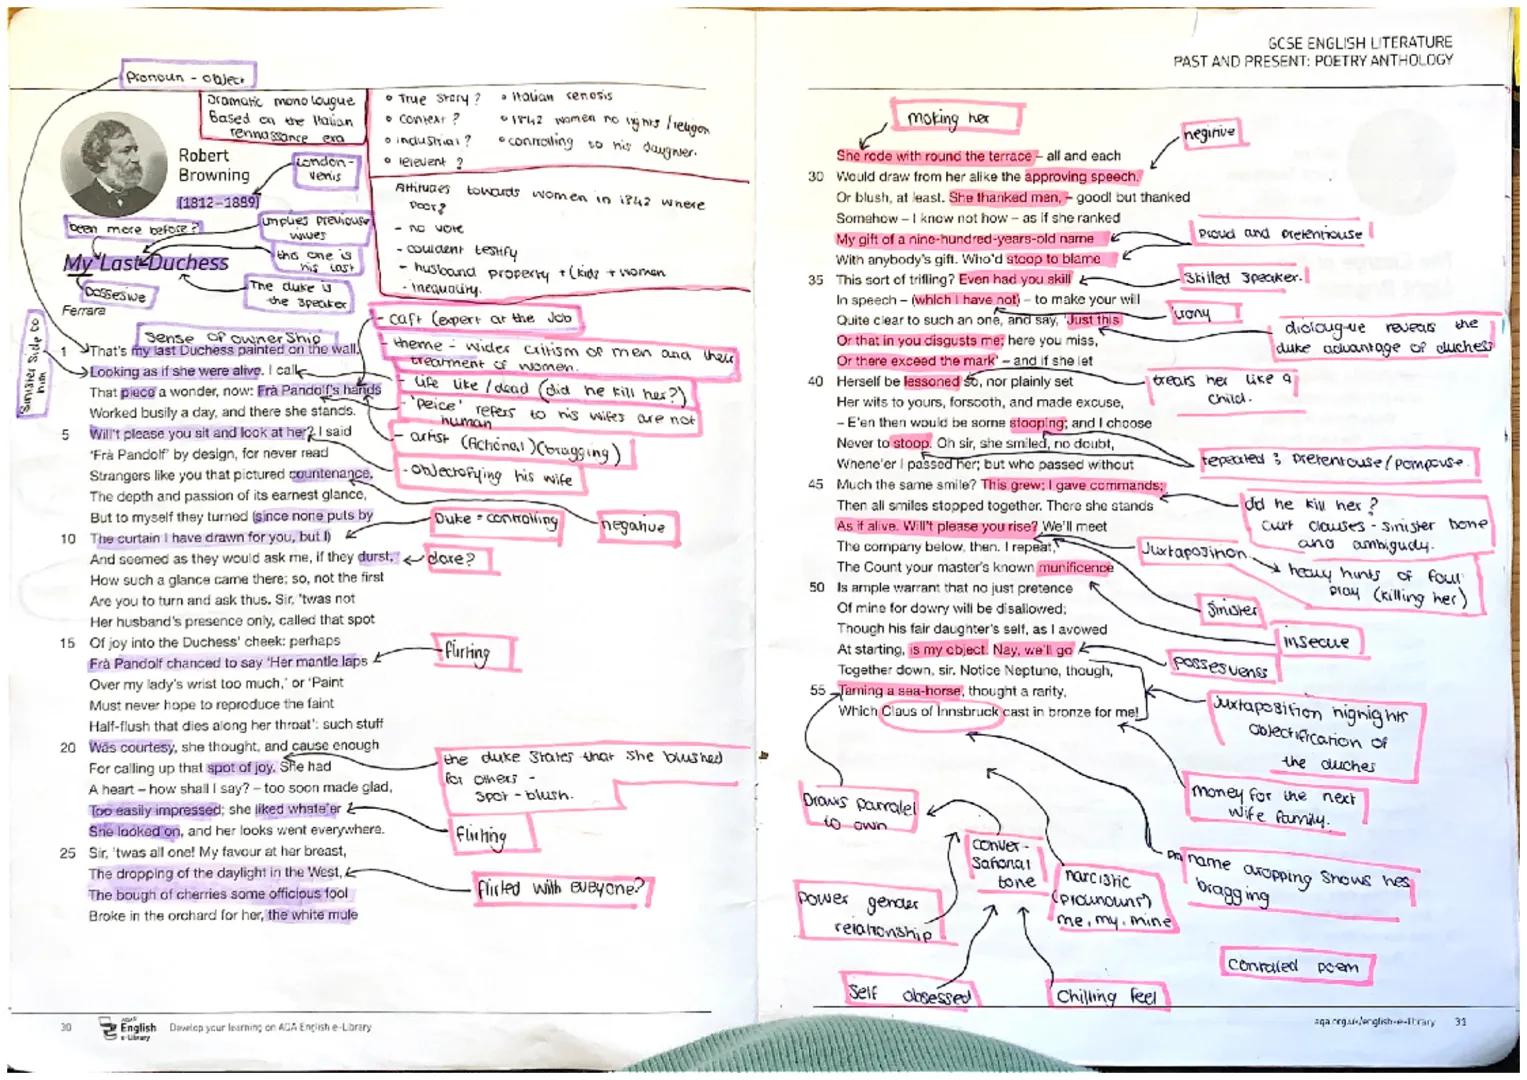 Pronoun - object
Dramatic monolougue
Based on the Italian
rennassance era
• True story?
• Context?
• industrial?
• relevent?
• Italian renosis
• 1842 women no rights/religon
• controlling to his daughter.
Robert
Browning
(1812–1889)
London-
venis
Attitudes towards women in 1842 where
poor?
- no vote
- couldent testify
- husband property + (kids + women
- inequality.
been more before?
implies previouse
wives
this one is
his last
My Last Duchess
possesive
The duke is
the speaker
Ferrara
Sinister side to
him
Sense of ownership
- caft (expert at the job
- theme - wider critism of men and their
treatment of women.
- life like/dead (did he kill her?)
- 'peice' refers to his wifes are not
human
- artist (fictional)(bragging)
- objectofying his wife
1 That's my last Duchess painted on the wall,
Looking as if she were alive. I call
That piece a wonder, now: Frà Pandolf's hands
Worked busily a day, and there she stands.
5 Will't please you sit and look at her? I said
'Frà Pandolf' by design, for never read
Strangers like you that pictured countenance,
The depth and passion of its earnest glance,
But to myself they turned (since none puts by
10 The curtain I have drawn for you, but I)
And seemed as they would ask me, if they durst,
How such a glance came there; so, not the first
Are you to turn and ask thus. Sir, 'twas not
Her husband's presence only, called that spot
15 Of joy into the Duchess' cheek: perhaps
Frà Pandolf chanced to say 'Her mantle laps
Over my lady's wrist too much,' or 'Paint
Must never hope to reproduce the faint
Half-flush that dies along her throat': such stuff
20 Was courtesy, she thought, and cause enough
For calling up that spot of joy. She had
A heart – how shall I say? – too soon made glad,
Too easily impressed; she liked whate'er
She looked on, and her looks went everywhere.
25 Sir, 'twas all one! My favour at her breast,
The dropping of the daylight in the West,
The bough of cherries some officious fool
Broke in the orchard for her, the white mule
Duke = controlling
negative
dare?
flirting
the duke states that she blushed
for others -
spot - blush.
flirting
flirted with everyone?
30
AQA
English
e-Library
Develop your learning on AQA English e-Library
GCSE ENGLISH LITERATURE
PAST AND PRESENT: POETRY ANTHOLOGY
making her
negitive
She rode with round the terrace – all and each
30 Would draw from her alike the approving speech,
Or blush, at least. She thanked men, – good! but thanked
Somehow – I know not how – as if she ranked
My gift of a nine-hundred-years-old name
With anybody's gift. Who'd stoop to blame
35 This sort of trifling? Even had you skill
In speech – (which I have not) – to make your will
Quite clear to such an one, and say, 'Just this
Or that in you disgusts me; here you miss,
Or there exceed the mark' – and if she let
40 Herself be lessoned so, nor plainly set
Her wits to yours, forsooth, and made excuse,
– E'en then would be some stooping; and I choose
Never to stoop. Oh sir, she smiled, no doubt,
Whene'er I passed her; but who passed without
45 Much the same smile? This grew; I gave commands;
Then all smiles stopped together. There she stands
As if alive. Will't please you rise? We'll meet
The company below, then. I repeat,
The Count your master's known munificence
50 Is ample warrant that no just pretence
Of mine for dowry will be disallowed;
Though his fair daughter's self, as I avowed
At starting, is my object. Nay, we'll go
Together down, sir. Notice Neptune, though,
55 Taming a sea-horse, thought a rarity,
Which Claus of Innsbruck cast in bronze for me!
Proud and pretenhouse
Skilled speaker.
irony
dioloug-ue reveals the
duke advantage of duchess
treats her like a
child.
repeated & pretentouse/pompouse.
did he kill her?
curt clauses - sinister tone
and ambiguity.
Juxtaposition.
heavy hints of foul
play (killing her)
Sinister
insecue
possesveness
Juxtaposition highlights
objectification of
the duches
money for the next
wife family.
name dropping shows hes
bragging
Draws parralel
to own
conver-
sational
tone
narcistic
(pronouns)
me, my, mine
power gender
relationship
Self obsessed
Chilling feel
Controled poem
aqa.org.uk/english-e-library 31